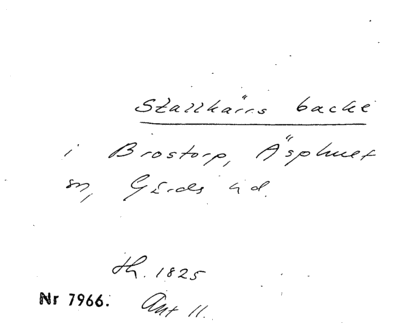 Stallkärrs backe
i Brostorp, Äsphult
sn, Gärds hd.
th. 1825
Nr 7966. Ant 11.